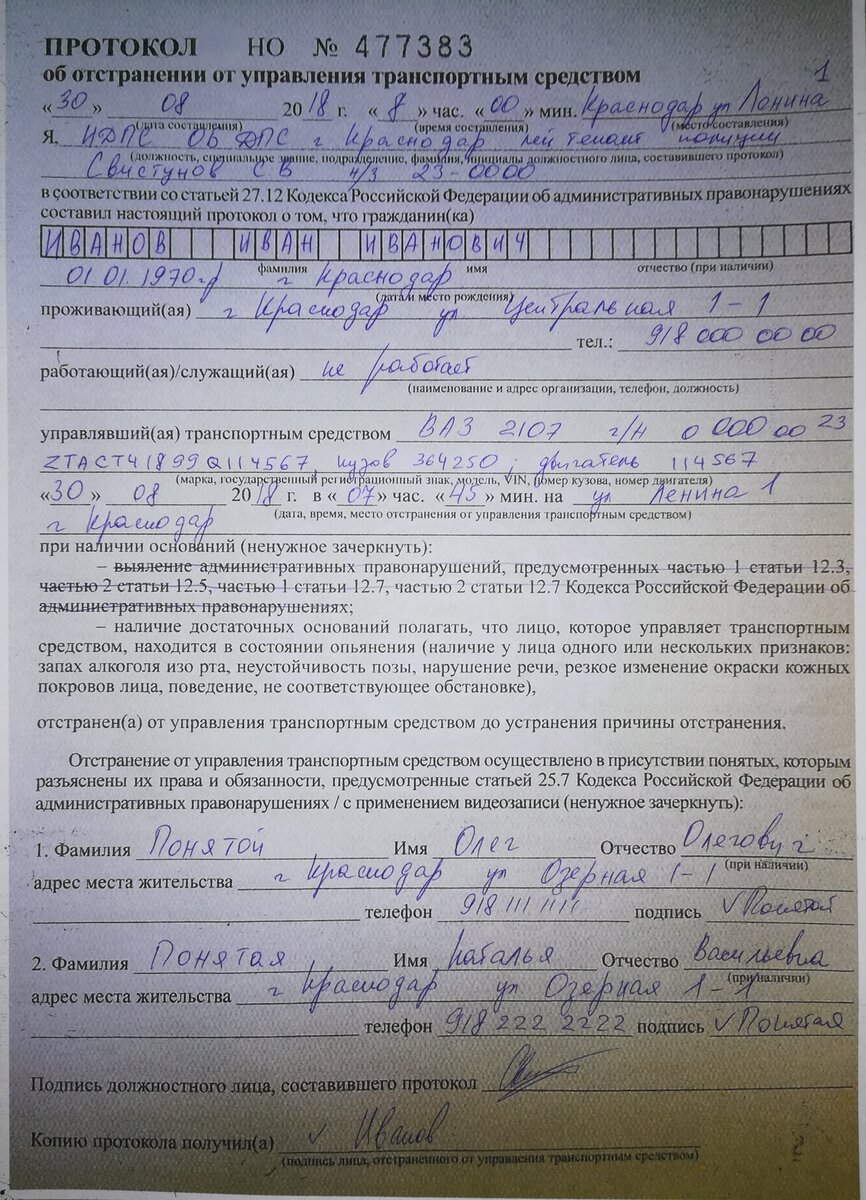 ПРОТОКОЛ НО № 477383
об отстранении от управления транспортным средством
« 30 » 08 2018 г. « 8 » час. « 00 » мин. Краснодар ул Ленина 1
(дата составления) (время составления) (место составления)
Я, ИДПС ОБ ДПС г Краснодар лейтенант полиции
(должность, специальное звание, подразделение, фамилия, инициалы должностного лица, составившего протокол)
Свистунов С В н/з 23-0000
в соответствии со статьей 27.12 Кодекса Российской Федерации об административных правонарушениях
составил настоящий протокол о том, что гражданин(ка)
ИВАНОВ ИВАН ИВАНОВИЧ
фамилия имя отчество (при наличии)
01 01. 1970 г.р г Краснодар
(дата и место рождения)
проживающий(ая) г Краснодар ул. Центральная 1-1
тел.: 918 000 00 00
работающий(ая)/служащий(ая) не работает
(наименование и адрес организации, телефон, должность)
управлявший(ая) транспортным средством ВАЗ 2107 г/н о 000 оо 23
ZTACT41899Q114567, кузов 364250, двигатель 114567
(марка, государственный регистрационный знак, модель, VIN, номер кузова, номер двигателя)
« 30 » 08 2018 г. в « 07 » час. « 45 » мин. на ул Ленина 1
г Краснодар (дата, время, место отстранения от управления транспортным средством)
при наличии оснований (ненужное зачеркнуть):
– выяление административных правонарушений, предусмотренных частью 1 статьи 12.3,
частью 2 статьи 12.5, частью 1 статьи 12.7, частью 2 статьи 12.7 Кодекса Российской Федерации об
административных правонарушениях;
– наличие достаточных оснований полагать, что лицо, которое управляет транспортным
средством, находится в состоянии опьянения (наличие у лица одного или нескольких признаков:
запах алкоголя изо рта, неустойчивость позы, нарушение речи, резкое изменение окраски кожных
покровов лица, поведение, не соответствующее обстановке),
отстранен(а) от управления транспортным средством до устранения причины отстранения.
Отстранение от управления транспортным средством осуществлено в присутствии понятых, которым
разъяснены их права и обязанности, предусмотренные статьей 25.7 Кодекса Российской Федерации об
административных правонарушениях / с применением видеозаписи (ненужное зачеркнуть):
1. Фамилия Понятой Имя Олег Отчество Олегович
(при наличии)
адрес места жительства г Краснодар ул Озерная 1-1
телефон 918 111 11 11 подпись v Понятой
2. Фамилия Понятая Имя Наталья Отчество Васильевна
(при наличии)
адрес места жительства г Краснодар ул Озерная 1-1
телефон 918 222 2222 подпись v Понятая
Подпись должностного лица, составившего протокол
Копию протокола получил(а) v Иванов
(подпись лица, отстраненного от управления транспортным средством)